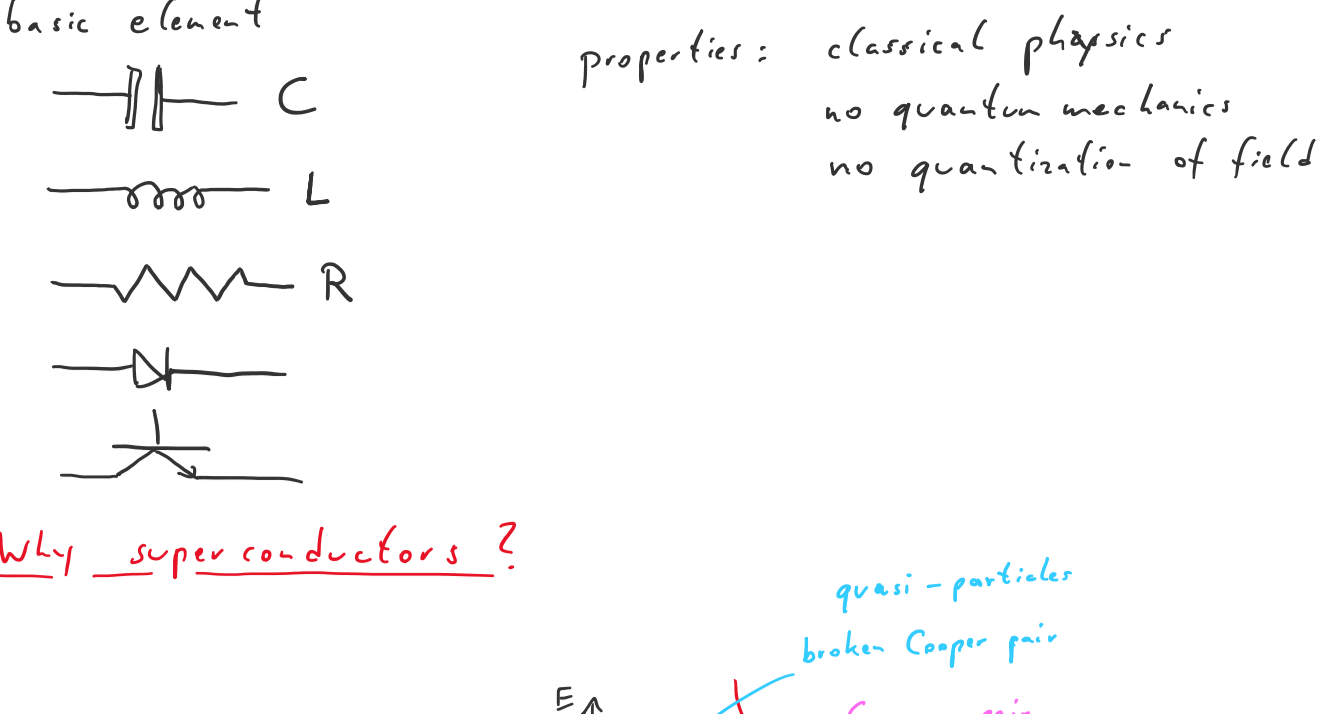 basic element
C
L
R
properties: classical physics
no quantum mechanics
no quantization of field
Why superconductors?
quasi-particles
broken Cooper pair
E